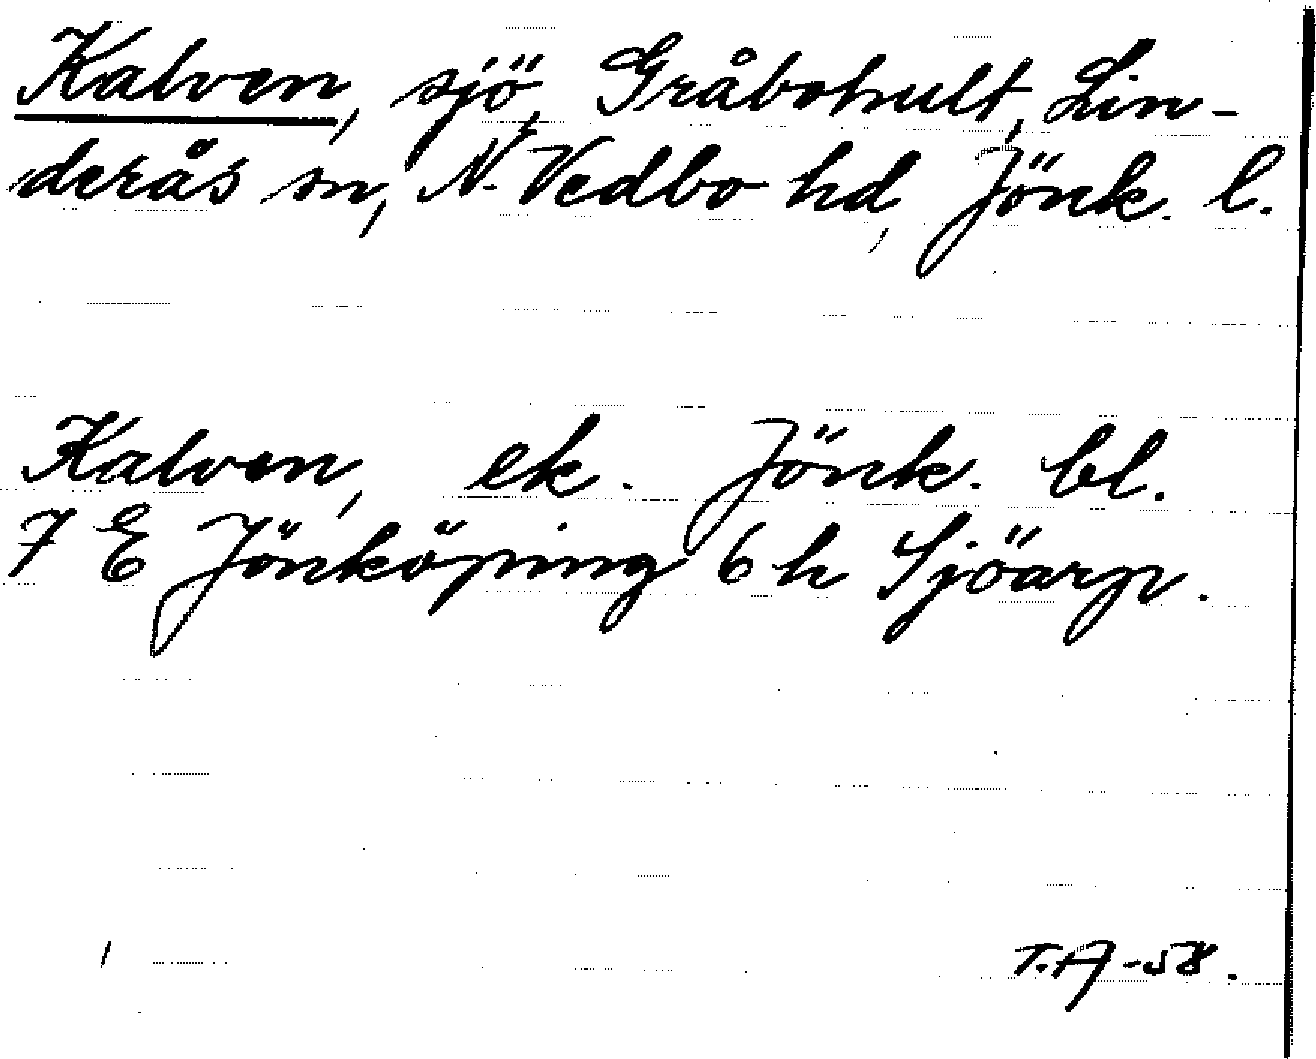 Kalven, sjö, Gråbohult, Lin-
derås sn, N. Vedbo hd, Jönk. l.
Kalven, ek. Jönk. bl.
7 E Jönköping 6 h Sjöarp.
T.A -58.